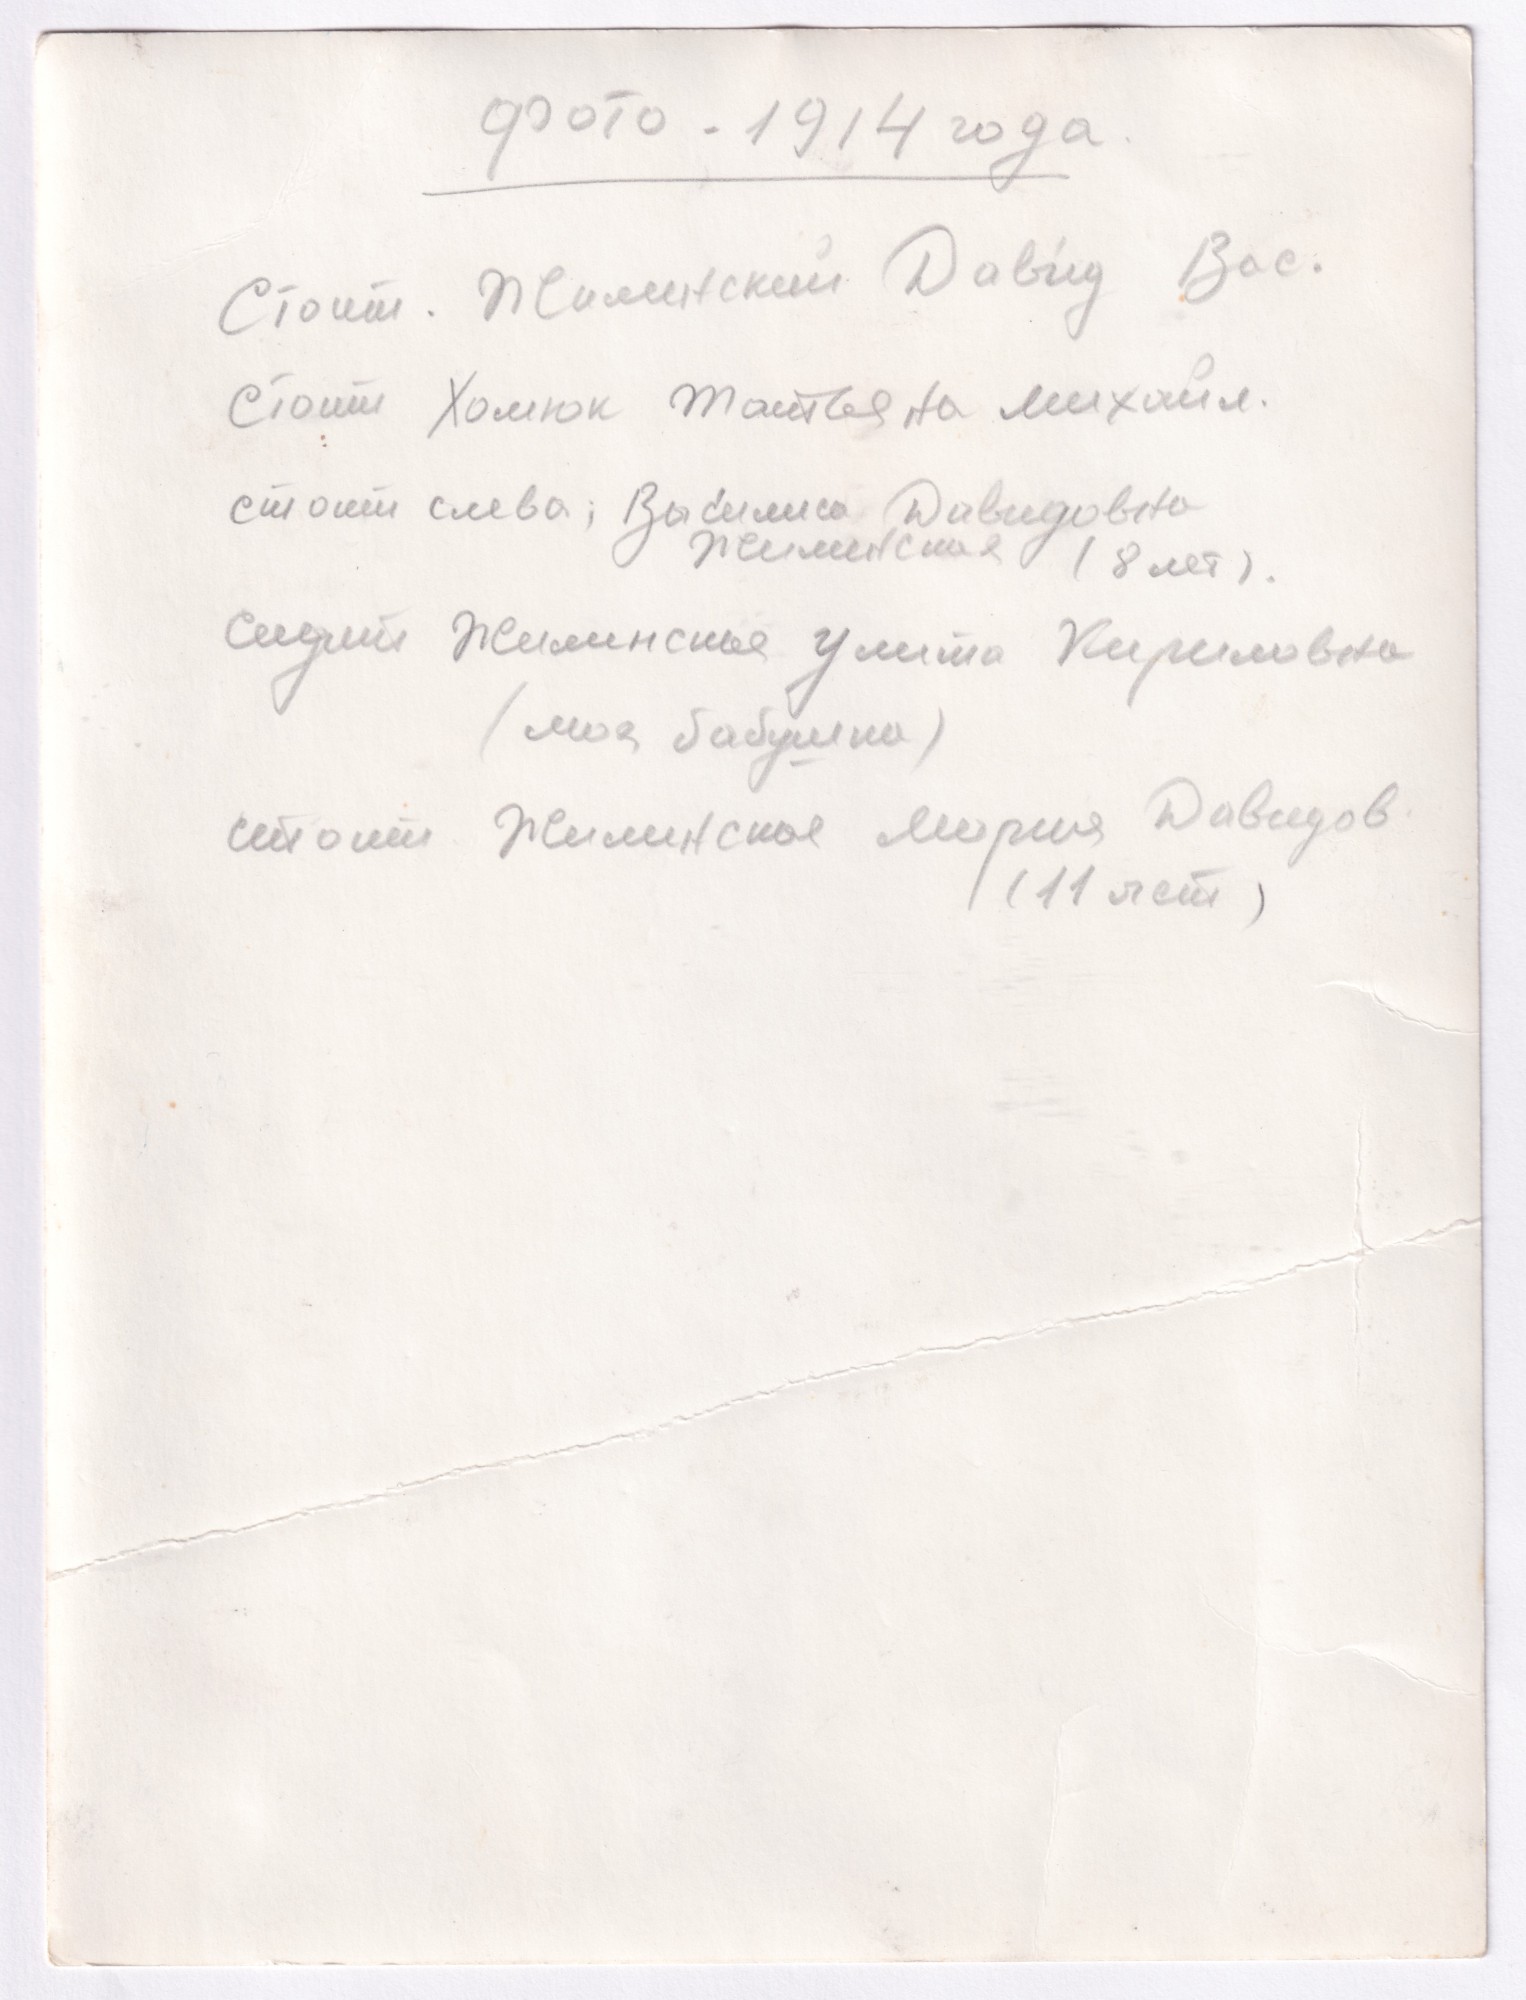 Фото - 1914 года.
Стоит. Жилинский Давид Вас.
Стоит Хомюк Татьяна Михайл.
стоит слева; Василиса Давидовна
Жилинская (8 лет).
сидит Жилинская Улита Кириловна
(моя бабушка)
стоит Жилинская Мария Давидов.
(11 лет)